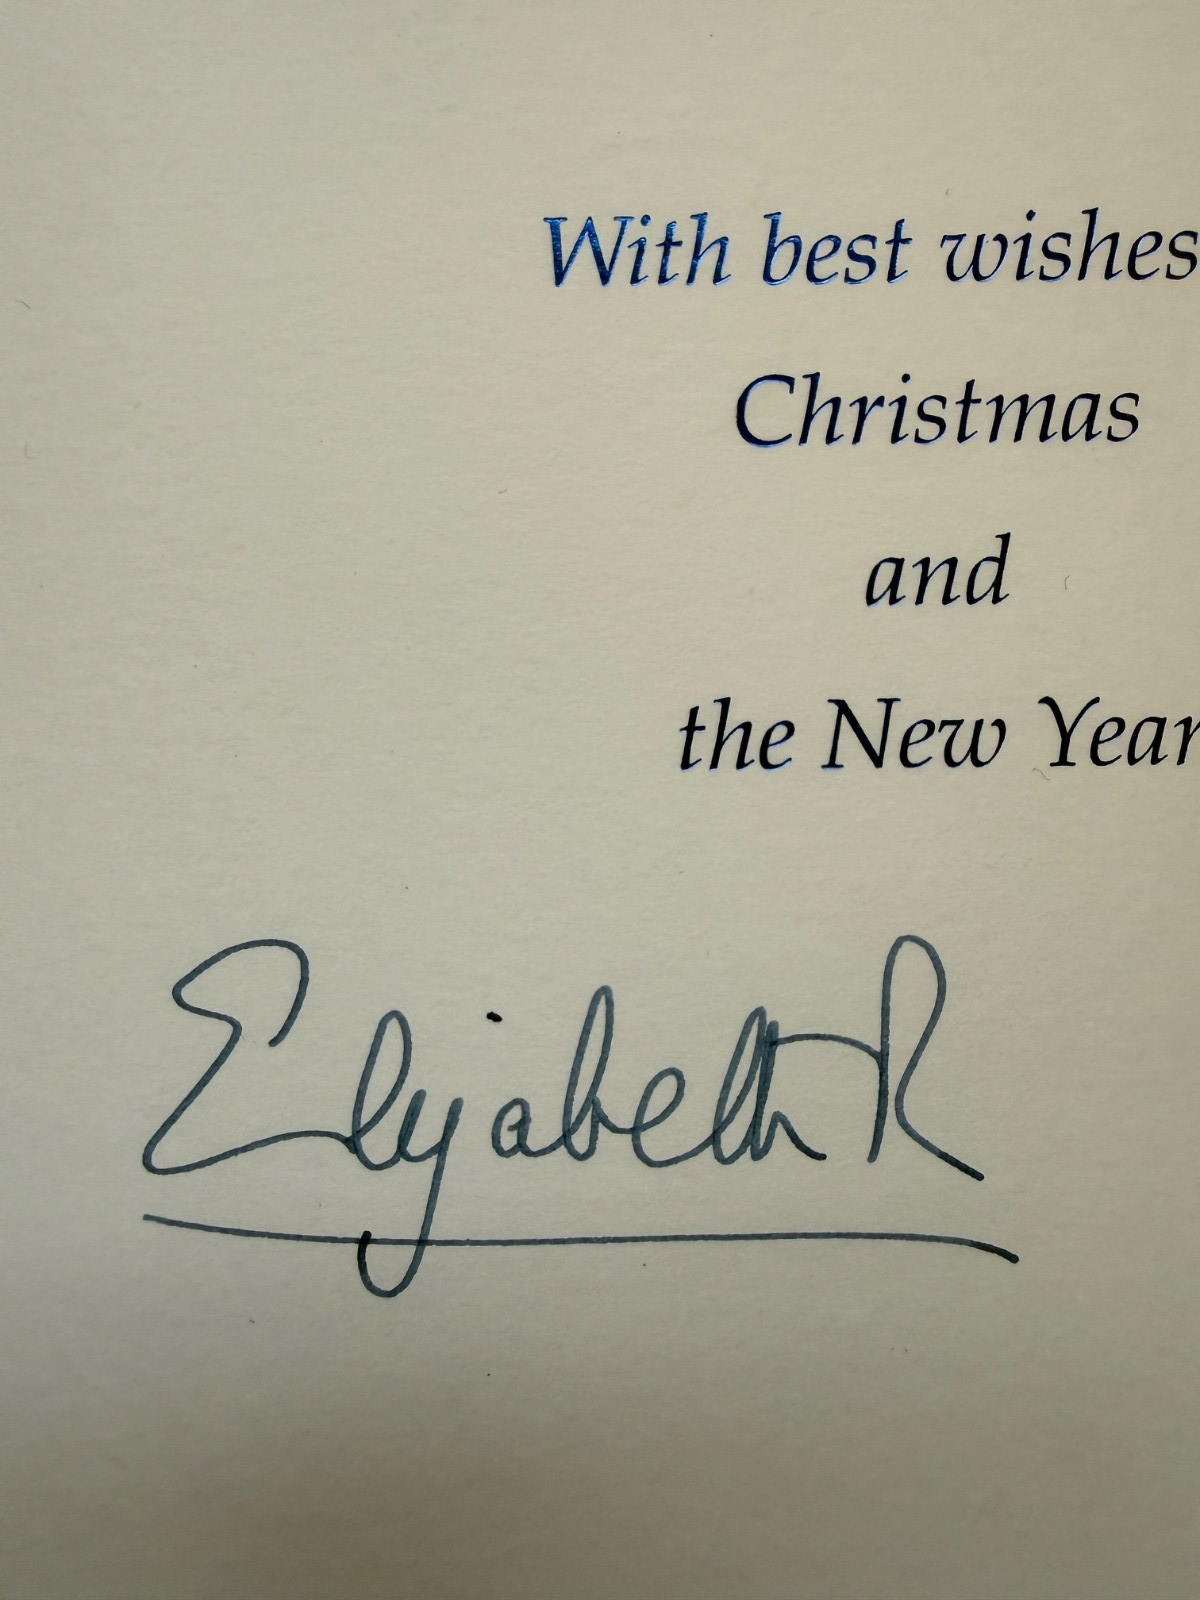 With best wishes
Christmas
and
the New Year
Elizabeth R